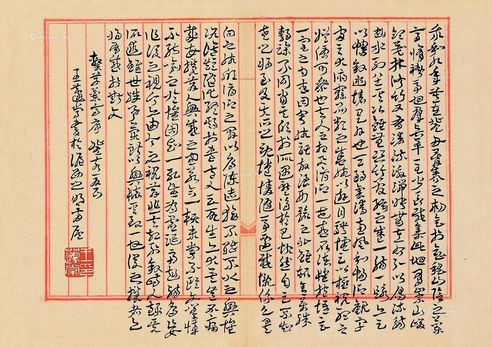 永和九年歲在癸丑暮春之初會于會稽山陰之蘭
亭脩禊事也羣賢畢至少長咸集此地有崇山峻
領茂林脩竹又有清流激湍暎帶左右引以為流觴
曲水列坐其次雖無絲竹管弦之盛一觴一詠亦足
以暢敘幽情是日也天朗氣清惠風和暢仰觀宇
宙之大俯察品類之盛所以遊目騁懷足以極視聽之
娛信可樂也夫人之相與俯仰一世或取諸懷抱悟言
一室之內或因寄所託放浪形骸之外雖趣舍萬殊
靜躁不同當其欣於所遇蹔得於己怏然自足不知
老之將至及其所之既惓情隨事遷感慨係之矣
向之所欣俛仰之間以為陳迹猶不能不以之興懷
況脩短隨化終期於盡古人云死生亦大矣豈不痛
哉每攬昔人興感之由若合一契未嘗不臨文嗟悼
不能喻之於懷固知一死生為虛誕齊彭殤為妄
作後之視今亦由今之視昔悲夫故列敘時人錄其
所述雖世殊事異所以興懷其致一也後之攬者亦
將有感於斯文
王蘧常書於滬西之明兩廬